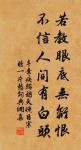 若教眼底無離恨
不信人間有白頭
辛棄疾鷓鴣天晚日寒
鴉一片愁詞